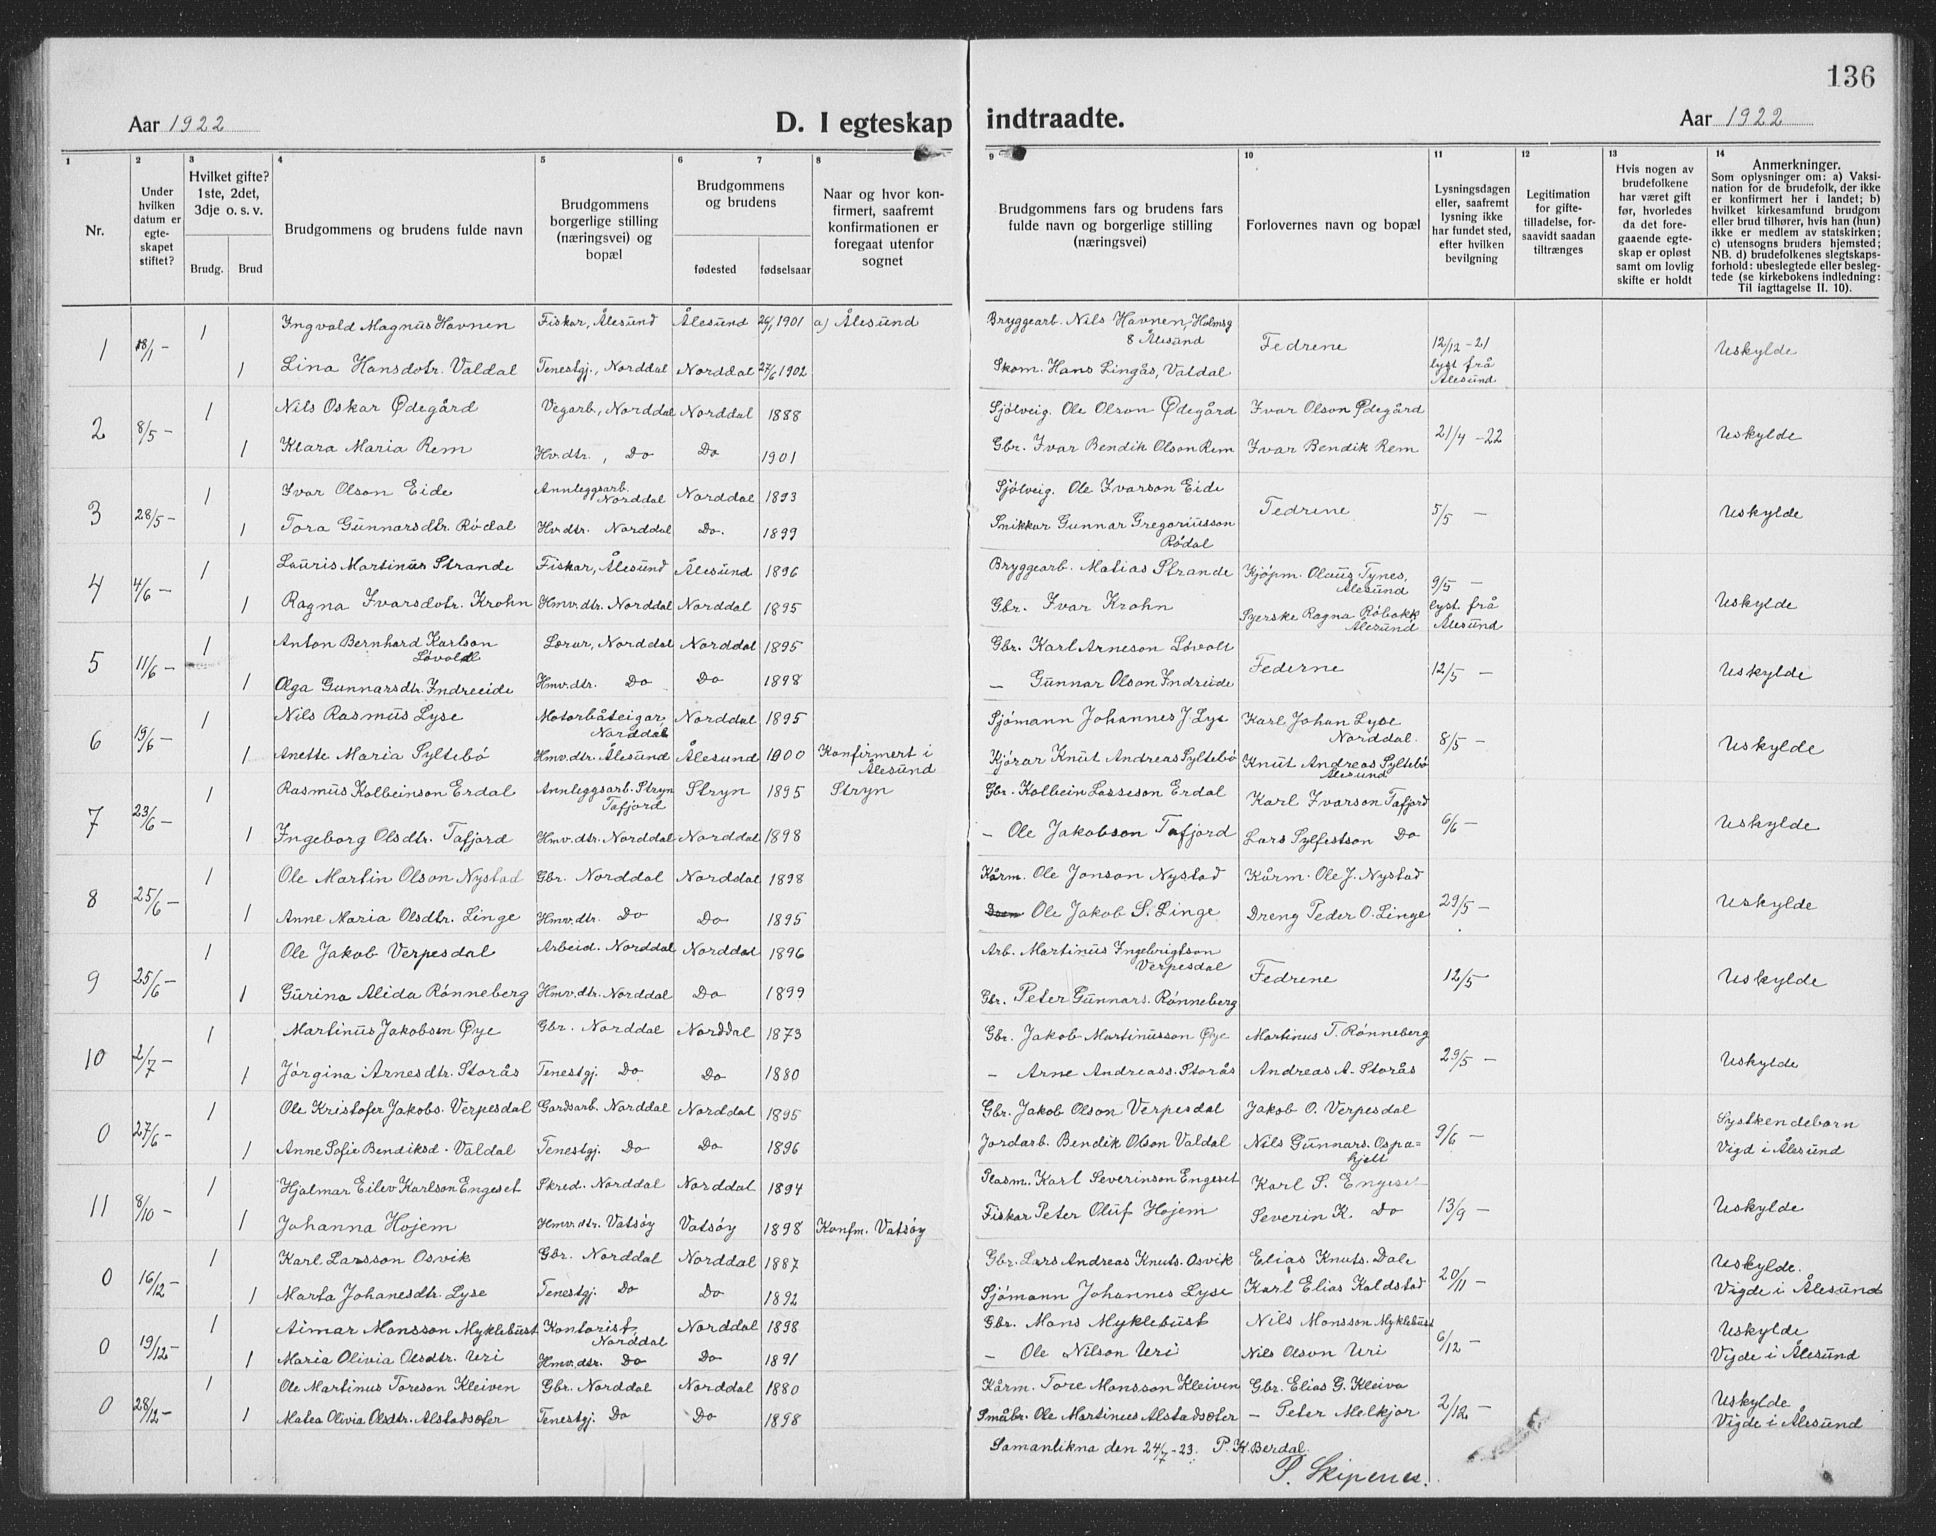 136
Aar 1922
D. I egteskap indtraadte.
Aar 1922
1 2 3 4 5 6 7 8 9 10 11 12 13 14
Nr.
Under hvilken datum er egte-skapet stiftet?
Hvilket gifte? 1ste, 2det, 3dje o. s. v.
Brudg. Brud
Brudgommens og brudens fulde navn
Brudgommens borgerlige stilling (næringsvei) og bopæl
Brudgommens og brudens
fødested fødselsaar
Naar og hvor kon-firmert, saafremt konfirmationen er foregaat utenfor sognet
Brudgommens fars og brudens fars fulde navn og borgerlige stilling (næringsvei)
Forlovernes navn og bopæl
Lysningsdagen eller, saafremt lysning ikke har fundet sted, efter hvilken bevilgning
Legitimation for gifte-tilladelse, for-saavidt saadan tiltrænges
Hvis nogen av brudefolkene har været gift før, hvorledes da det fore-gaaende egte-skap er opløst samt om lovlig skifte er holdt
Anmerkninger.
Som oplysninger om: a) Vaksi-nation for de brudefolk, der ikke er konfirmert her i landet; b) hvilket kirkesamfund brudgom eller brud tilhører, hvis han (hun) ikke er medlem av statskirken; c) utensogns bruders hjemsted; NB. d) brudefolkenes slegtskaps-forhold: ubeslegtede eller besleg-tede (se kirkebokens indledning: Til iagttagelse II. 10).
1 18/1 - 1 Ingvald Magnus Havnen Fiskar, Ålesund Ålesund 1901 a) Ålesund Bryggearb. Nils Havnen, Holmsg 8 Ålesund Fedrene 12/12-21 lyst frå Ålesund Uskylde
1 Lina Hansdotr. Valdal Tenestgj., Norddal Norddal 27/6 1902 Skom. Hans Lingås, Valdal
2 8/5 - 1 Nils Oskar Ødegård Vegarb., Norddal Norddal 1888 Sjölveig. Ole Olson Ødegård Ivar Olson Ødegård 21/4 -22 Uskylde
1 Klara Maria Rem Hv.dtr., Do Do 1901 Gbr. Ivar Bendik Olson Rem Ivar Bendik Rem
3 28/5 - 1 Ivar Olson Eide Annleggsarb. Norddal Norddal 1893 Sjölveig. Ole Ivarson Eide Fedrene 5/5 - Uskylde
1 Tora Gunnarsdtr. Rödal Hv.dtr. Norddal Do. 1899 Snikkar Gunnar Gregoriusson Rödal
4 4/6 - 1 Lauris Martinus Strande Fiskar, Ålesund Ålesund 1896 Bryggearb. Matias Strande Kjöpm. Olaus Tynes, Ålesund 9/5 - lyst frå Ålesund Uskylde
1 Ragna Ivarsdotr. Krohn Hmv.dtr. Norddal Norddal 1895 Gbr. Ivar Krohn Syerske Ragna Röbakk Ålesund
5 11/6 - 1 Anton Bernhard Karlson Lövold Lærar, Norddal Norddal 1895 Gbr. Karl Arneson Lövoll Federne 12/5 - Uskylde
1 Olga Gunnarsdtr. Indreeide Hmv.dtr. Do Do 1898 - Gunnar Olson Indreide
6 19/6 - 1 Nils Rasmus Lyse Motorbåteigar, Norddal Norddal 1895 Sjömann Johannes J Lyse Karl Johan Lyse Norddal. 8/5 - Uskylde
1 Anette Maria Syltebö Hmv.dtr. Ålesund Ålesund 1900 Konfirmert i Ålesund Kjörar Knut Andreas Syltebö Knut Andreas Syltebö Ålesund
7 23/6 - 1 Rasmus Kolbeinson Erdal Annleggsarb. Stryn Tafjord Stryn 1895 Stryn Gbr. Kolbein Lasseson Erdal Karl Ivarson Tafjord 6/6 - Uskylde
1 Ingeborg Olsdtr. Tafjord Hmv.dtr. Norddal Norddal 1898 - Ole Jakobson Tafjord Lars Sylfestson Do
8 25/6 - 1 Ole Martin Olson Nystad Gbr. Norddal Norddal 1898 Kårm. Ole Jonson Nystad Kårm. Ole J. Nystad 29/5 - Uskylde
1 Anne Maria Olsdtr. Linge Hmv.dtr. Do Do 1895 Ole Jakob S. Linge Dreng Peder O. Linge
9 25/6 - 1 Ole Jakob Verpesdal Arbeid. Norddal Norddal 1896 Arb. Martinus Ingebrigtson Verpesdal Fedrene 12/5 - Uskylde
1 Gurina Alida Rönneberg Hmv.dtr. Norddal Do 1899 Gbr. Peter Gunnars. Rönneberg
10 2/7 - 1 Martinus Jakobsen Øye Gbr. Norddal Norddal 1873 Gbr. Jakob Martinusson Øye Martinus T. Rönneberg 29/5 - Uskylde
1 Jörgina Arnesdtr. Storås Tenestgj. Do Do 1880 - Arne Andreass. Storås Andreas A. Storås
0 27/6 - 1 Ole Kristofer Jakobs. Verpesdal Gardsarb. Norddal Norddal 1895 Gbr. Jakob Olson Verpesdal Jakob O. Verpesdal 9/6 - Systkendeborn
1 Anne Sofie Bendiksd. Valdal Tenestgj. Do Do 1896 Jordarb. Bendik Olson Valdal Nils Gunnars. Ospahjell Vigd i Ålesund
11 8/10 - 1 Hjalmar Eilev Karlson Engeset Skred. Norddal Norddal 1894 Plasm. Karl Severinson Engeset Karl S. Engeset 13/9 - Uskylde
1 Johanna Hojem Hmv.dtr. Vatsöy Vatsöy 1898 Konfm. Vatsöy Fiskar Peter Oluf Hojem Severin K. Do
0 16/12 - 1 Karl Larsson Osvik Gbr. Norddal Norddal 1887 Gbr. Lars Andreas Knuts. Osvik Elias Knuts. Dale 20/11 - Uskylde.
1 Marta Johanesdtr. Lyse Tenestgj. Do Do 1892 Sjömann Johannes Lyse Karl Elias Kaldstad Vigde i Ålesund
0 19/12 - 1 Aimar Monsson Myklebust Kontorist, Norddal Norddal 1898 Gbr. Mons Myklebust Nils Monsson Myklebust 6/12 - Uskylde
1 Maria Olivia Olsdtr. Uri Hmv.dtr. Do Do 1891 - Ole Nilson Uri Nils Olson Uri Vigde i Ålesund
0 28/12 - 1 Ole Martinus Toreson Kleiven Gbr. Norddal Norddal 1880 Kårm. Tore Monsson Kleiven Gbr. Elias G. Kleiva 2/12 - Uskylde
1 Matea Olivia Olsdtr. Alstadsæter Tenestgj. Do Do 1898 Småbr. Ole Martinus Alstadsæter - Peter Melkjor Vigde i Ålesund
Samanlikna den 24/7-23. P. K. Berdal.
P. Skipenes.